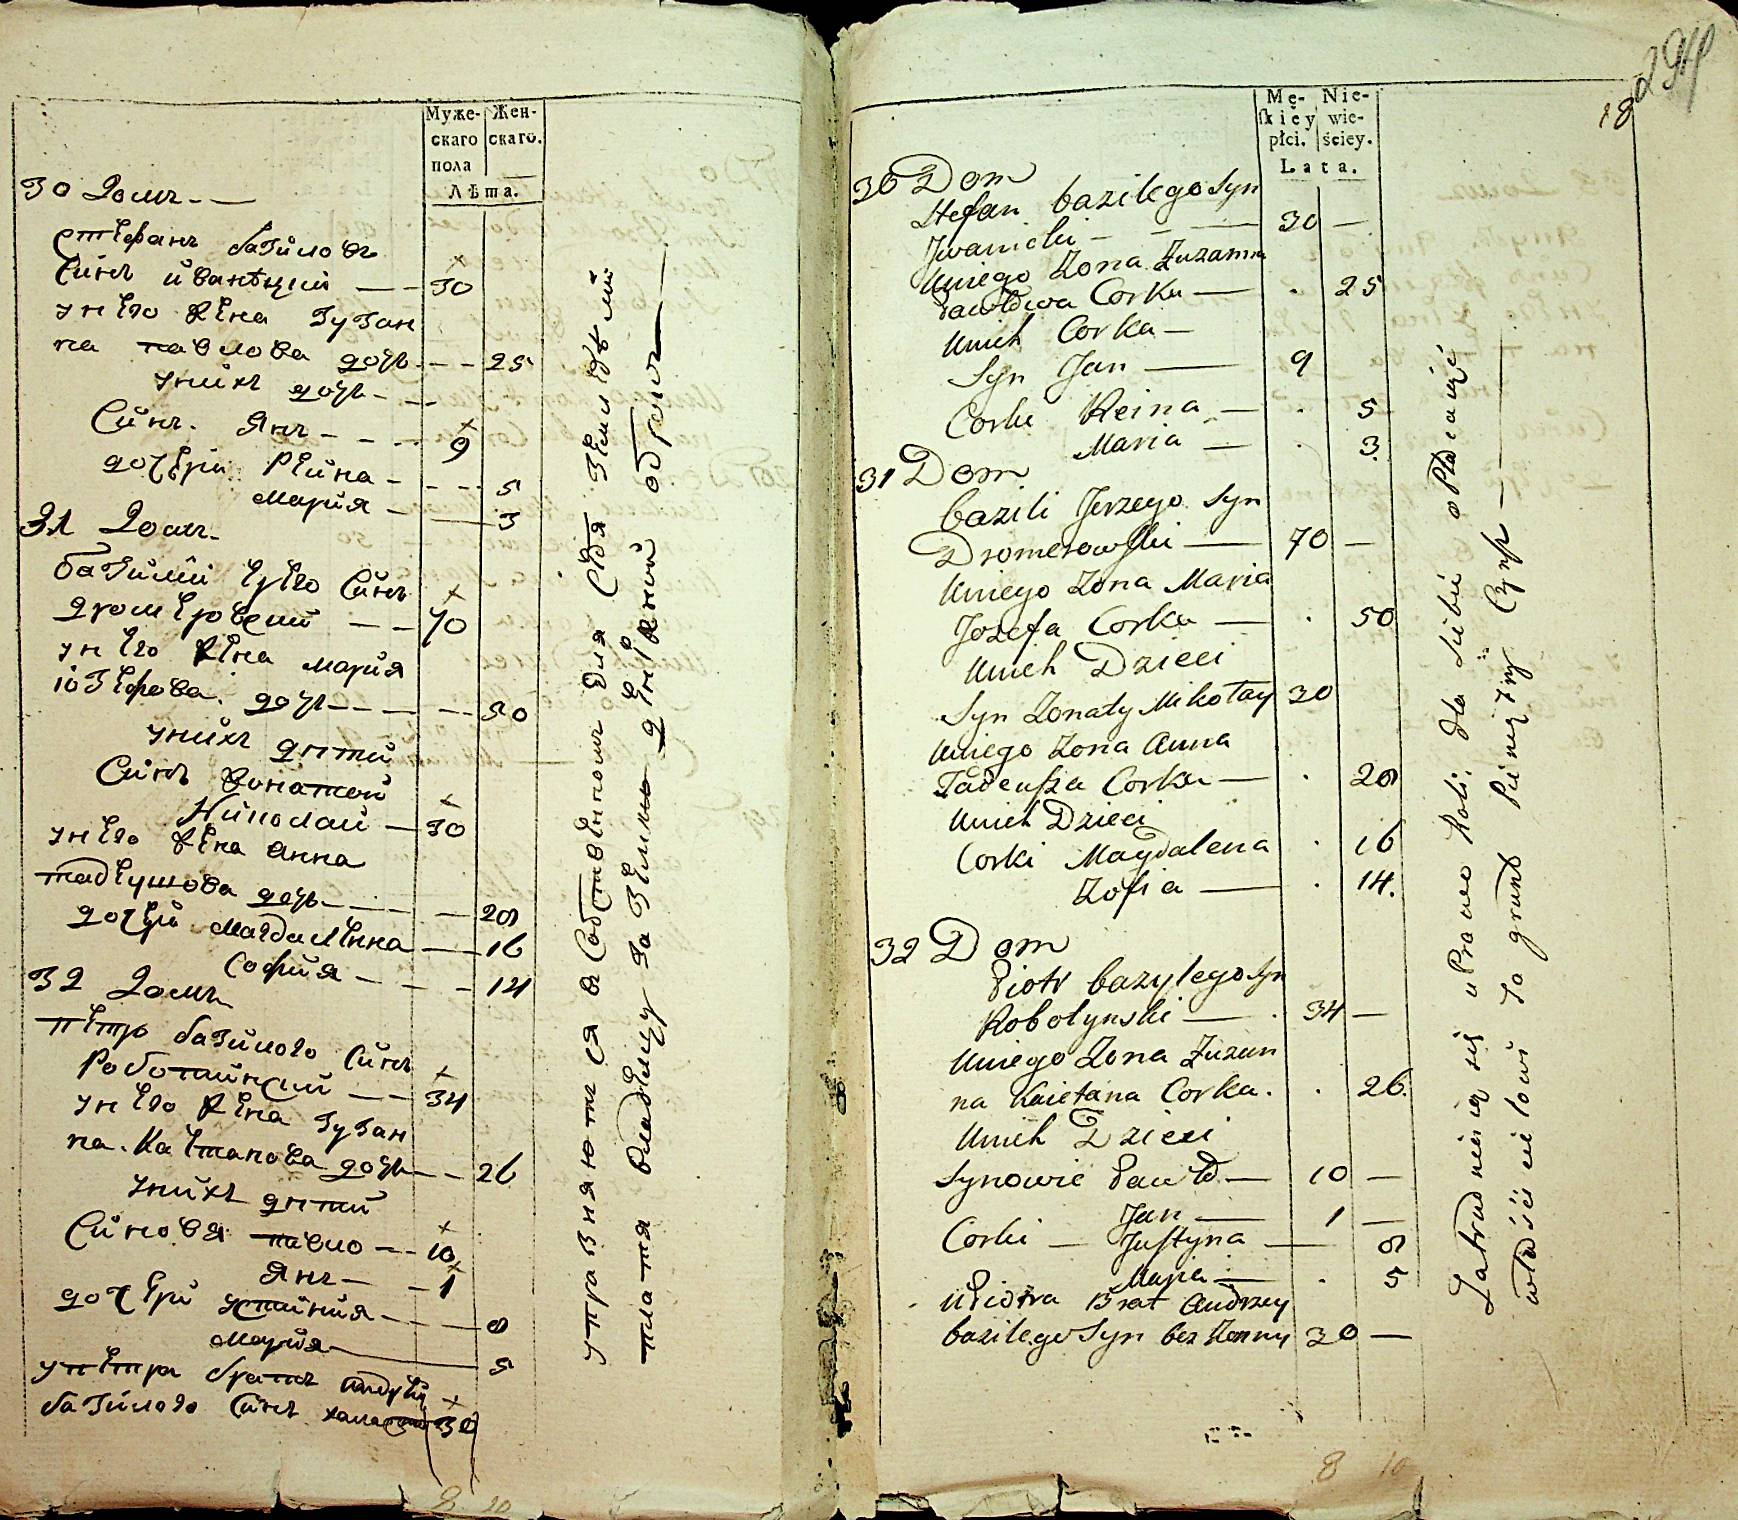 Муже-
скаго
пола
Жен-
скаго.
Лѣта.
30 Домъ
Стефанъ базиловъ
Синъ иванѣцкий 30
у него жена Зузан
на павлова дочь 25
у нихъ дочь
Синъ Янъ 9
дочери Реина 5
Мария 3
31 Домъ
базилий Синъ
дромеровский 70
у него жена Мария
іозефова дочь 50
у нихъ дети
Синъ жонатой
Николай 30
у него жена Анна
тадеушова дочь 28
дочери Магдалена 16
София 14
32 Домъ
петръ базилого Синъ
Роботинский 34
у него жена Зузан
на Каетанова дочь 26
у нихъ дети
Синовя павло 10
Янъ 1
дочери устиния 8
Мария 5
у петра братъ андрей
базилого Синъ холостой 30
упражняются въ собственномъ для себя земледелии
платя владелцу за землю денежной оброкъ
8 10
294
18
Mę-
skiey
płci.
Nie-
wie-
ściey.
Lata.
30 Dom
Stefan bazilego Syn
Jwanicki 30 —
Uniego Zona Zuzanna
Pawłowa Corka — . 25
Unich Corka —
Syn Jan — 9
Corki Reina — . 5
Maria — . 3
31 Dom
bazili Jerzego Syn
Dromerowski — 70 —
Uniego Zona Maria
Jozefa Corka — . 50
Unich Dzieci
Syn Zonaty Mikołay 30
Uniego Zona Anna
Tadeusza Corka — . 28
Unich Dzieci
Corki Magdalena . 16
Zofia — . 14.
32 Dom
Piotr bazylego Syn
Robotynski — . 34 —
Uniego Zona Zuzan
na Kaietana Corka . . 26.
Unich Dzieci
Synowie Paweł — 10 —
Jan — 1 —
Corki — Justyna — 8
Maria — . 5
U Piotra Brat Andrzey
bazilego Syn bez Zonny 30 —
Zatrudnieią się uprawo Roli dla siebie opłacaiąc
właścicielowi za grunt Pienięzny Czynsz —
8 10